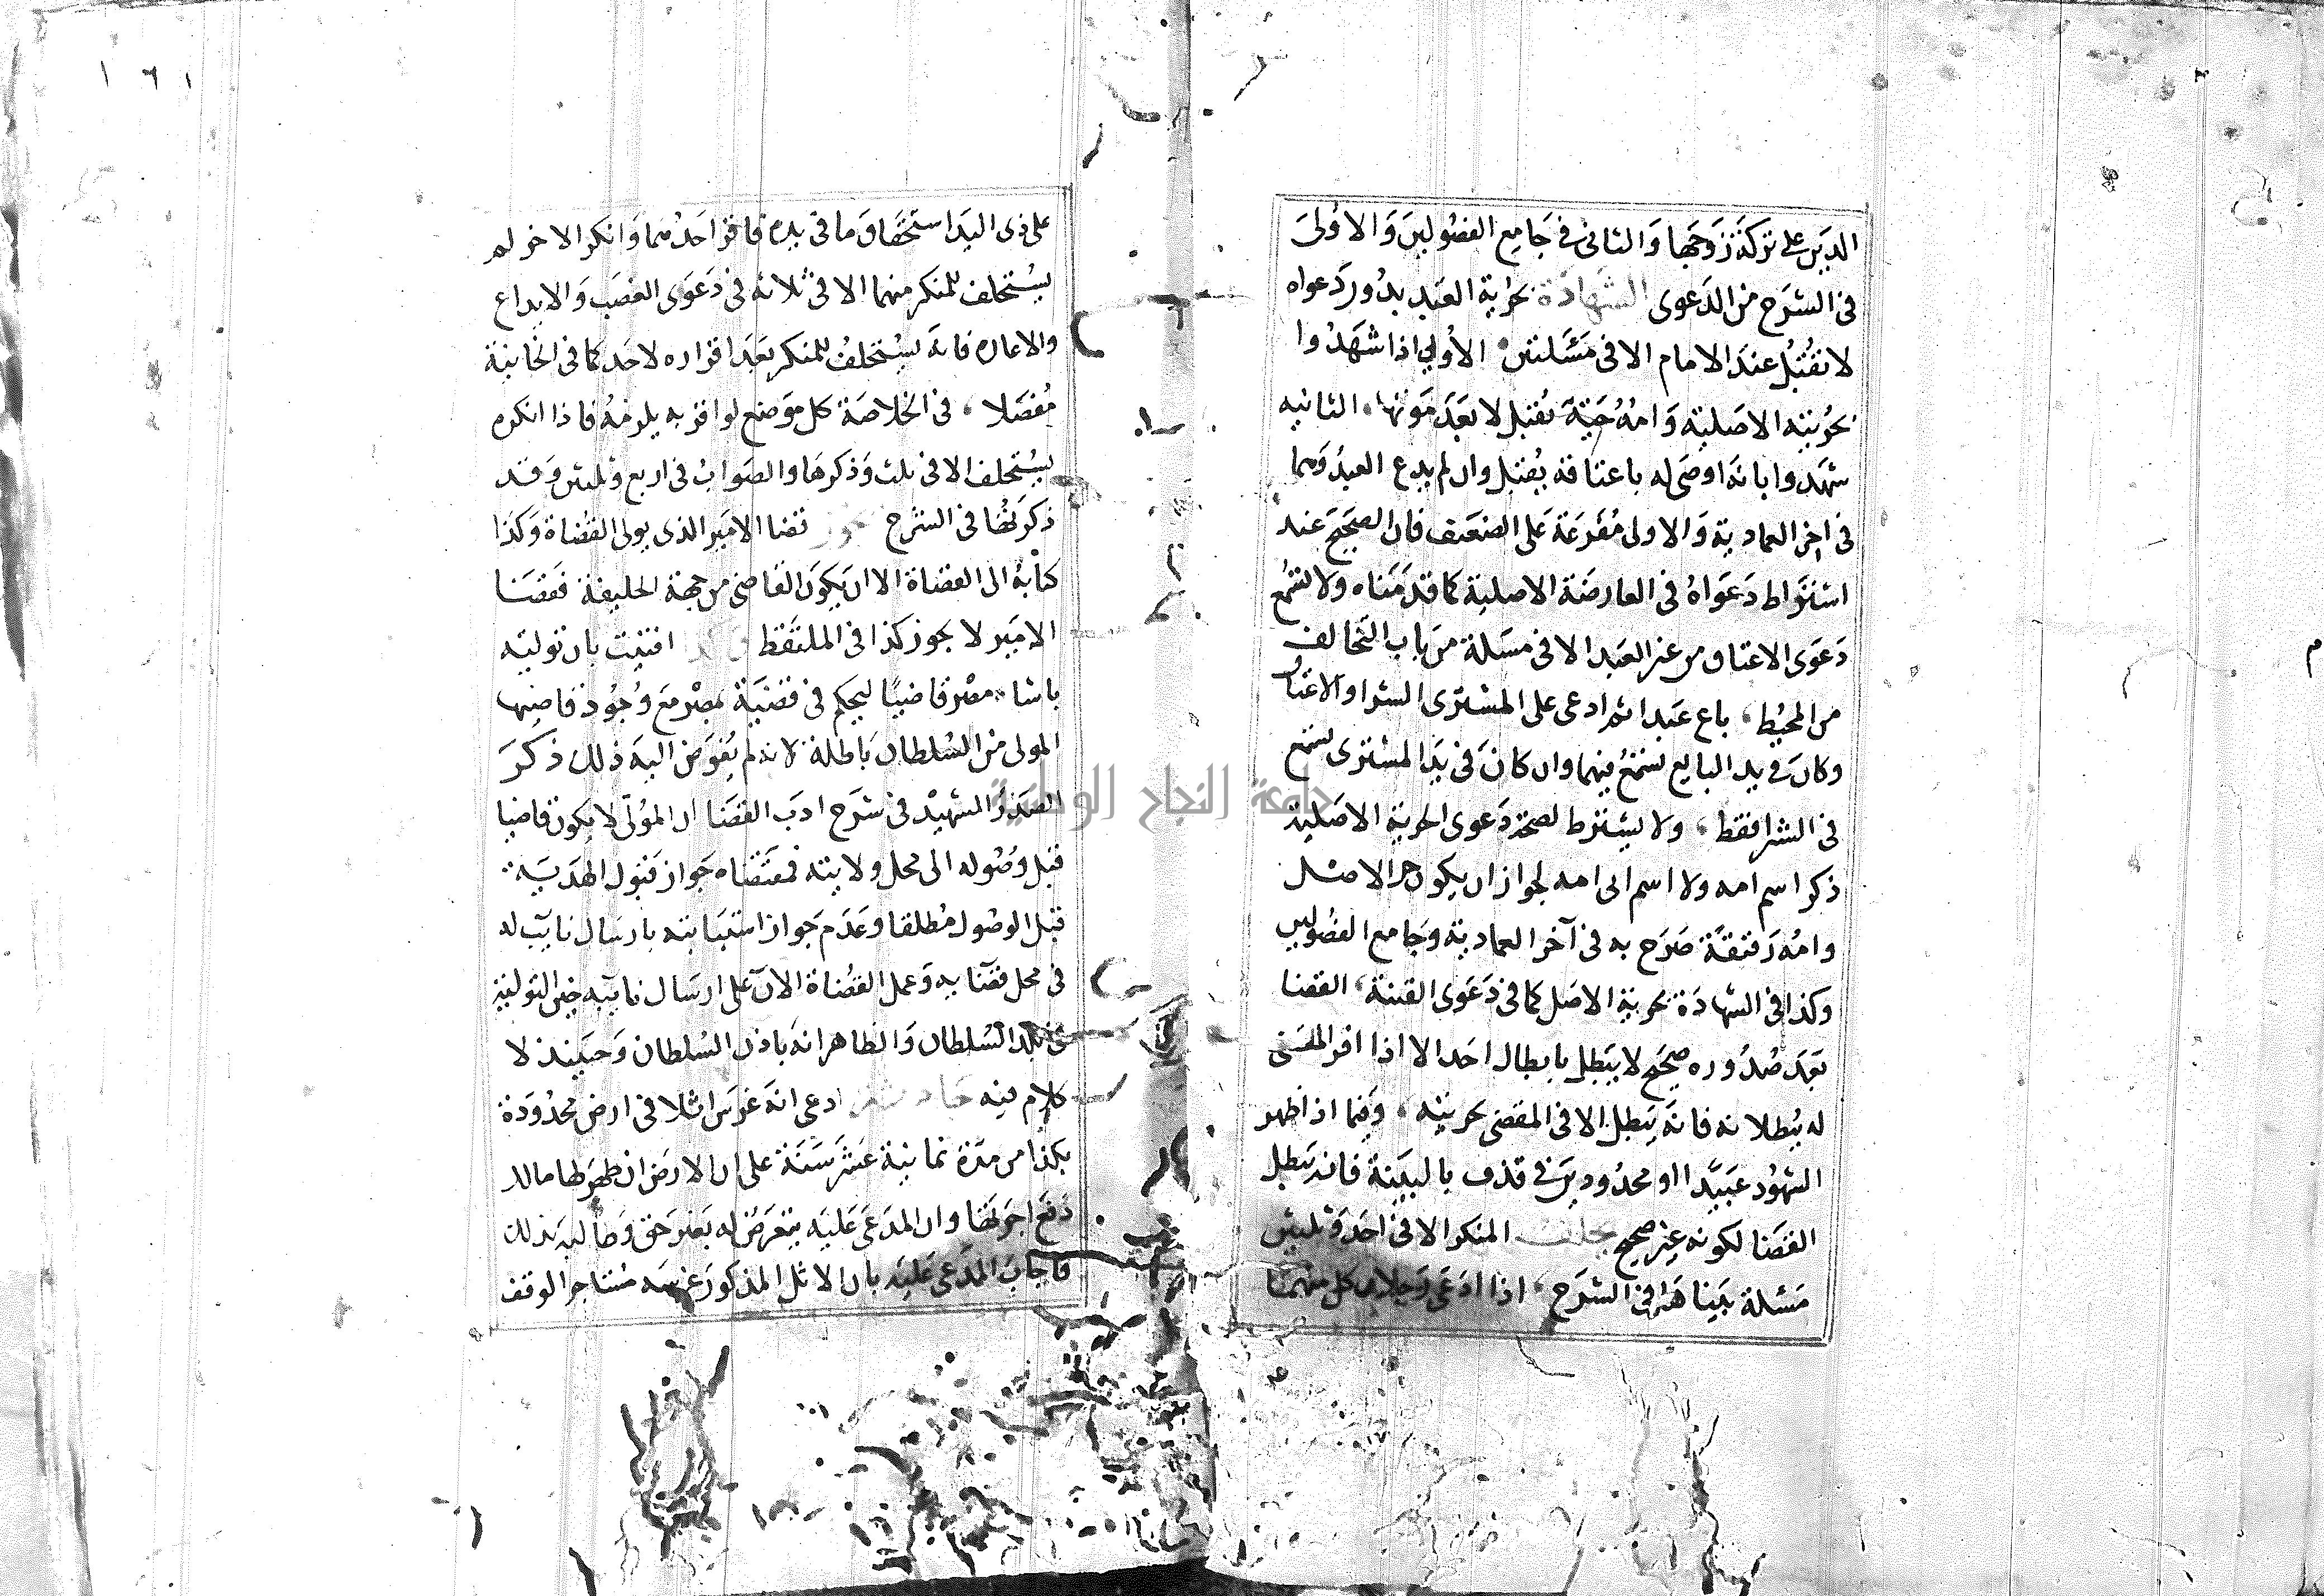 الدين على تركة زوجها والثاني في جامع الفصولين والاولى
في الشرح من الدعوى الشهادة بحرية العبد بدون دعواه
لا تقبل عند الامام الا في مسئلتين الأولى اذا شهدوا
بحريته الاصلية وامه حية تقبل لا بعد موتها الثانيه
شهدوا بانه اوصى له باعتاقه يقبل وان لم يدع العبد وهما
في اخر العمادية والاولى مفرعة على الضعيف فان الصحيح عند
اشتراط دعواه في العارضة الاصلية كما قدمناه ولا تسمع
دعوى الاعتاق من غير العبد الا في مسئلة من باب التحالف
من المحيط باع عبدا ثم ادعى على المشترى الشرا والاعتاق
وكان في يد البايع تسمع فيهما وان كان في يد المشترى تسمع
في الشرا فقط ولا يشترط لصحة دعوى الحرية الاصلية
ذكر اسم امه ولا اسم ابى امه لجواز ان يكون حر الاصل
وامه رقيقة صرح به في آخر العمادية وجامع الفصولين
وكذا في الشهادة بحرية الاصل كما في دعوى القنية القضا
بعد صدوره صحيح لا يبطل بابطال احد الا اذا اقر المقضى
له ببطلانه فانه يبطل الا في المقضى بحريته وفيما اذا ظهر
الشهود عبيدا او محدودين في قذف بالبينة فانه يبطل
القضا لكونه غير صحيح يحلف المنكر الا في احد وثلثين
مسئلة بيناها في الشرح اذا ادعى رجلان كل منهما
١٦١
على ذى اليد استحقاق ما في يده فاقر احدهما وانكر الاخر لم
يستحلف للمنكر منهما الا في ثلاثه في دعوى الغصب والايداع
والاعاره فانه يستحلف للمنكر بعد اقراره لاحد كما في الخانية
مفصلا في الخلاصة كل موضع لو اقر به يلزمه فاذا انكره
يستحلف الا في ثلث وذكرها والصواب في اربع وثلثين وقد
ذكرتها في الشرح يجوز قضا الامير الذى يولى القضاة وكذا
كتابه الى القضاة الا ان يكون القاضى من جهة الخليفة فقضا
الامير لا يجوز كذا في الملتقط وقد افتيت بان تولية
باشا مصر قاضيا ليحكم في قضية بمصر مع وجود قاضيها
المولى من السلطان باطلة لانه لم يفوض اليه ذلك ذكر
الصدر الشهيد في شرح ادب القضا ان المولى لا يكون قاضيا
قبل وصوله الى محل ولايته فمقتضاه جواز قبول الهدية
قبل الوصول مطلقا وعدم جواز استنابته بارسال نايب له
في محل قضآيه وعمل القضاة الآن على ارسال نايبه حين التولية
في بلد السلطان والظاهر انه باذن السلطان وحينيذ لا
كلام فيه حادثه ادعى انه غرس اثلا في ارض محدودة
بكذا من مدة ثمانية عشر سنة على ان الارض ان ظهر لها مالك
دفع اجرتها وان المدعى عليه يتعرض له بغير حق وطالبه بذلك
فاجاب المدعى عليه بان الاثل المذكور غرسه مستاجر الوقف
جامعة النجاح الوطنية